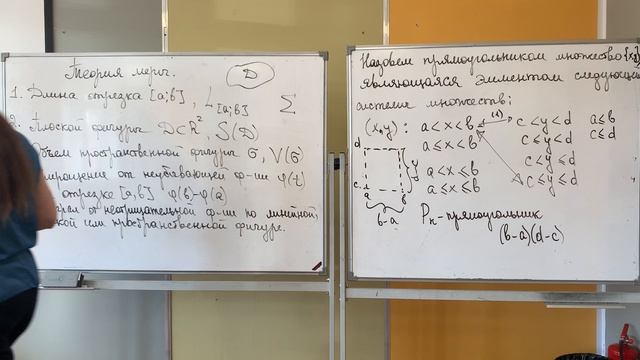 Теория меры.
D
1. Длина отрезка [a;b], L[a;b]
Σ
2. Плоской фигуры D⊂R², S(D)
Объем пространственной фигуры σ, V(σ)
от неубывающей ф-ии φ(t)
отрезке [a,b] φ(b)-φ(a)
от неотрицательной ф-ии по линейной,
или пространственной фигуре.
Назовем прямоугольником множество {x,y}
являющаяся элементом следующей
системы множеств:
(x,y): a<x<b (1) c<y<d a≤b
a≤x<b c≤y<d c≤d
a<x≤b c<y≤d
a≤x≤b c≤y≤d
d
c
a b
b-a
Pn-прямоугольник
(b-a)(d-c)